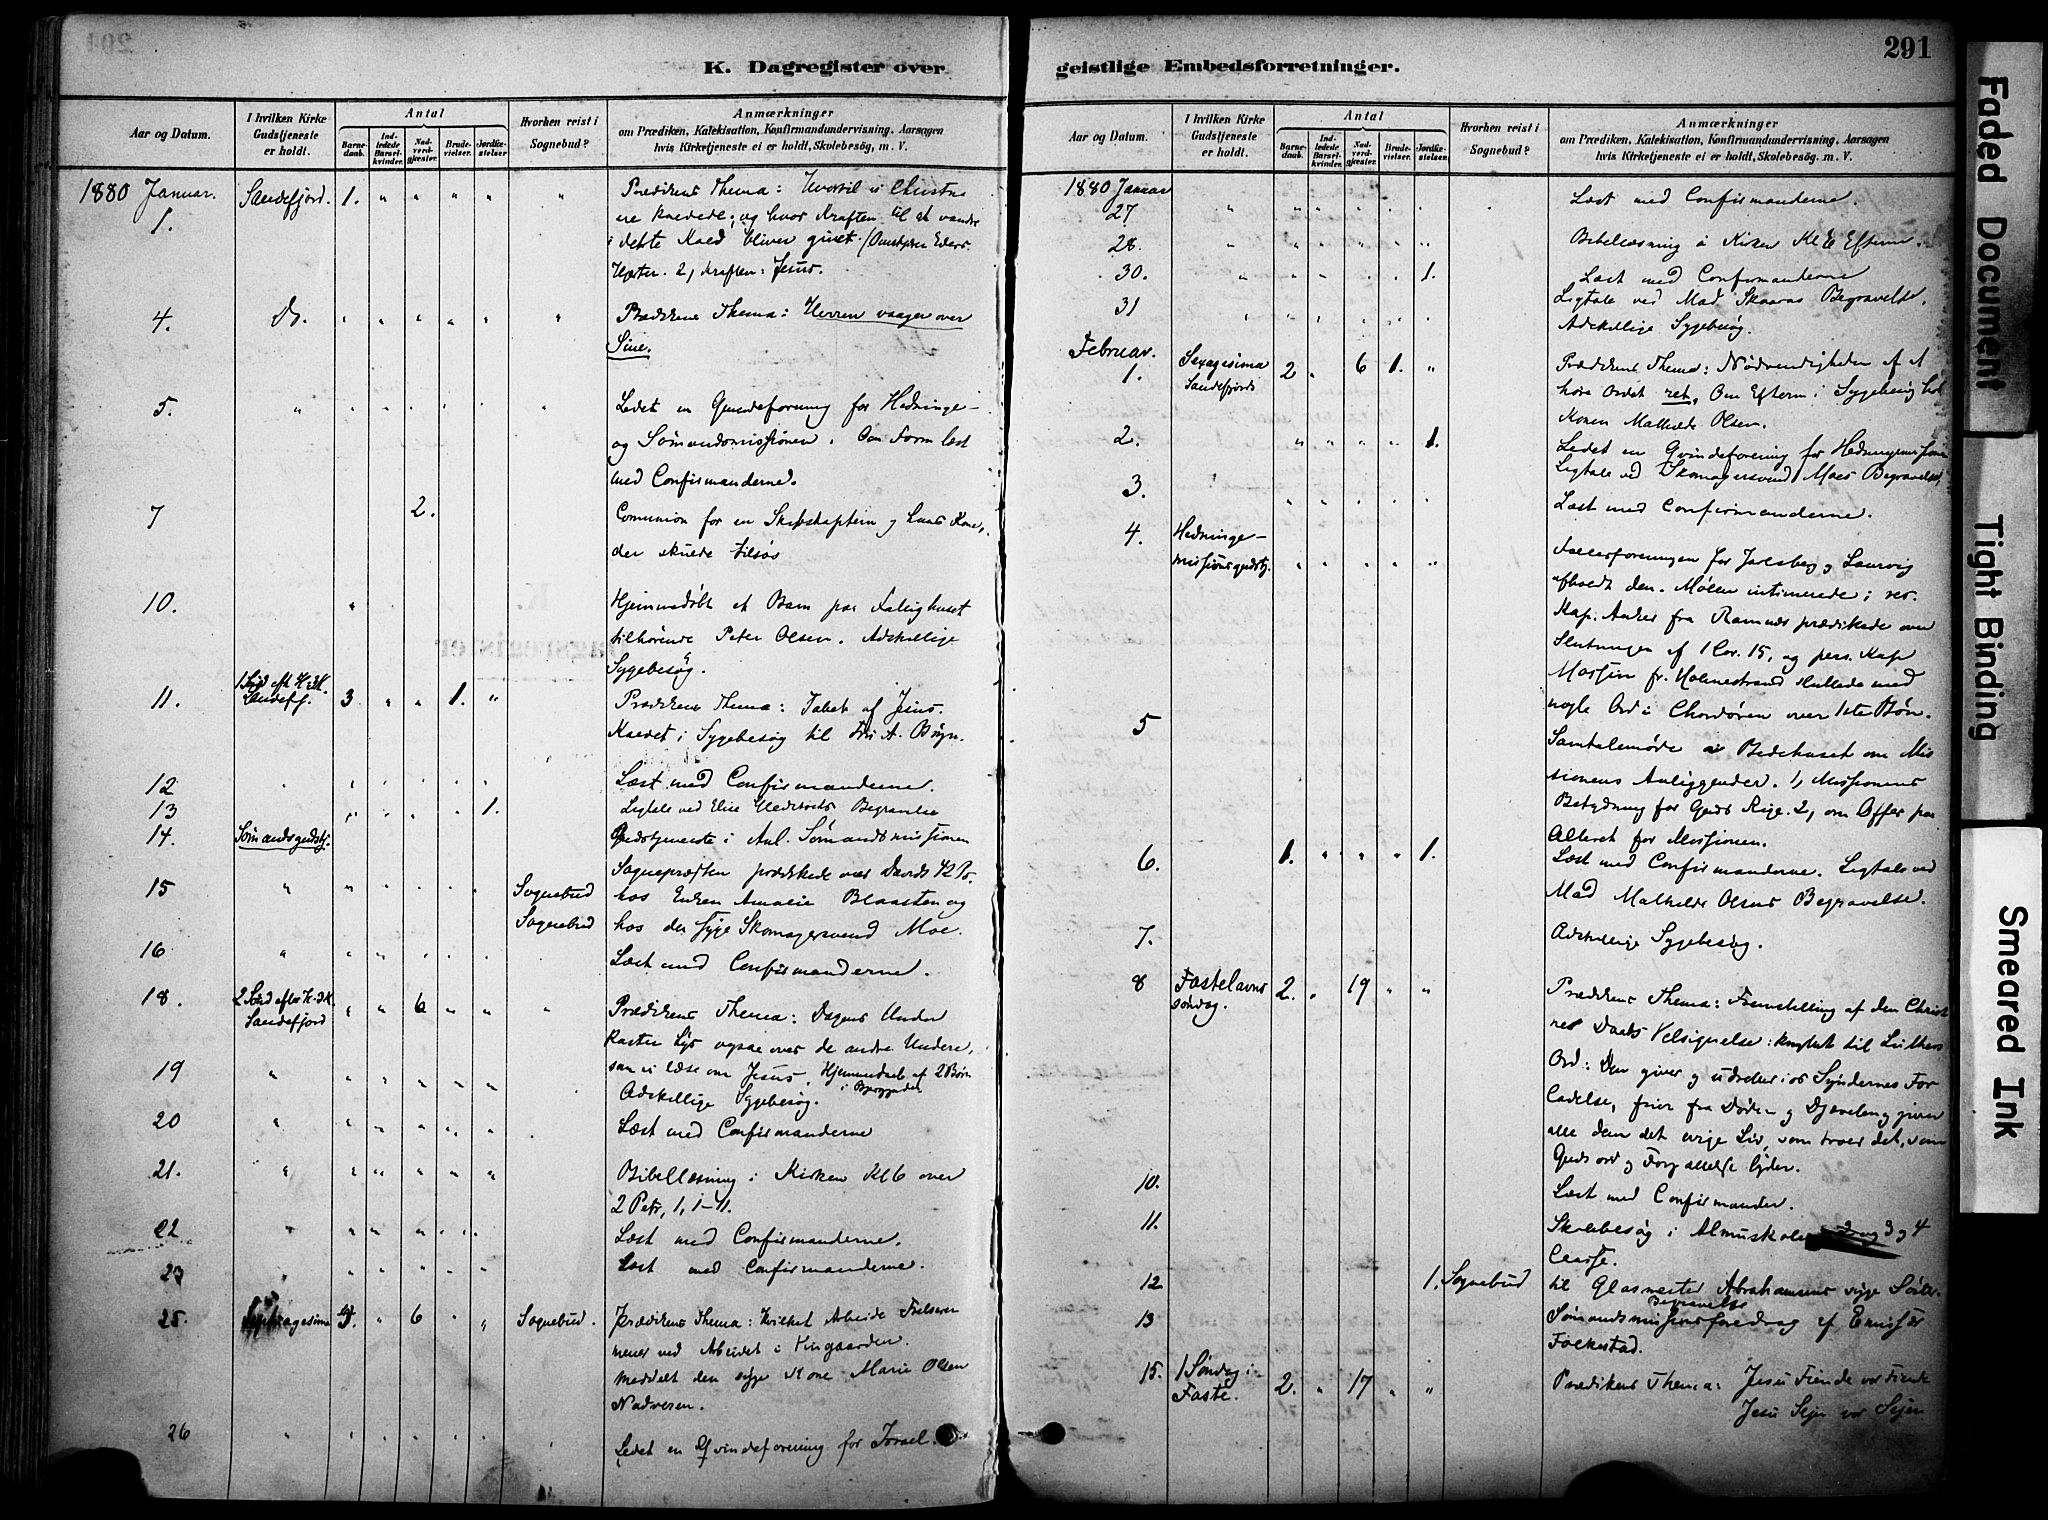 K. Dagregister over
Aar og Datum.
I hvilken Kirke Gudstjeneste er holdt.
Antal
Barnedaab.
Indledede Barselkvinder.
Nadverdgjester.
Brudevielser.
Jordfæstelser.
Hvorhen reist i Sognebud?
Anmærkninger
om Prædiken, Katekisation, Konfirmandundervisning, Aarsagen
hvis Kirketjeneste ei er holdt, Skolebesög, m. V.
1880 Januar.
1. Sandefjord. 1. " " " " " Prædikens Thema: Hvortil vi Christne
ere kaldede; og hvor Kraften til at vandre
i dette Kald bliver givet.
Hjerter. 2, Kraften: Jesus.
4. Do. Prædikens Thema: Herren vaager over
Sine.
5. Ledet en Qvindeforening for Hedninge-
og Sømandsmissionen. Om Form læst
med Confirmanderne.
7 2. Communion for en Skibskaptein og hans Kone,
der skulde tilsøs
10. Hjemmedøbt et Barn paa Fattighuset
tilhørende Peter Olsen. Adskillige
Sygebesøg.
11. 1 Sønd eft H.3K. Sandefj. 3 " " 1. " Prædikens Thema: Tabet af Jesus.
Kaldet i Sygebesøg til Fru A. Bøgn.
12 Læst med Confirmanderne.
13 1. Ligtale ved Elise Begravelse
14. Sømandsgudstj. Gudstjeneste i Anl. Sømandsmissionen
Sognepræsten prædikede over Davids 42 Ps.
15 Sognebud hos Enken Amalie Blaasten og
Sognebud hos den syge Skomagersvend Moe.
16 Læst med Confirmanderne.
18. 2 Sønd efter H.3K. Sandefjord " " 6 " " Prædikens Thema: Dagens Under
kaster Lys ogsaa over de andre Undere,
som vi læse om Jesus. Hjemmedaab af 2 Børn
19 Adskillige Sygebesøg.
20 Læst med Confirmanderne
21. Bibellæsning i Kirken Kl 6 over
2 Petr, 1, 1-11.
22 Læst med Confirmanderne.
23 Læst med Confirmanderne.
25. Septuagesima 6 Sognebud. Prædikens Thema: Hvilket Arbeide Frelseren
mener ved Arbeidet i Vingaarden.
Meddelt den syge Kone Marie Olsen
Nadveren.
26 Ledet en Qvindeforening for Israel.
geistlige Embedsforretninger.
291
Aar og Datum.
I hvilken Kirke Gudstjeneste er holdt.
Antal
Barnedaab.
Indledede Barselkvinder.
Nadverdgjester.
Brudevielser.
Jordfæstelser.
Hvorhen reist i Sognebud?
Anmærkninger
om Prædiken, Katekisation, Konfirmandundervisning, Aarsagen
hvis Kirketjeneste ei er holdt, Skolebesög, m. V.
1880 Januar
27 Læst med Confirmanderne.
28. Bibellæsning i Kirken Kl 6 Efterm.
30. 1. Læst med Confirmanderne
Ligtale ved Mad. Skaaras Begravelse.
31 Adskillige Sygebesøg.
Februar.
1. Sexagesima Sandefjord 2 " 6 1. " Prædikens Thema: Nødvendigheden af at
høre Ordet ret. Om Efterm i Sygebesøg hos
Konen Mathilde Olsen.
2. 1. Ledet en Qvindeforening for Hedningemissionen
Ligtale ved Skomagersvend Moes Begravelse,
3. Læst med Confirmanderne.
4. Hedninge-
missionsgudstj. Fællesforeningen for Jarlsberg og Laurvig
afholdt den. Møllen intimerede; res.
Kap. Anker fra Ramnæs prædikede over
Slutningen af 1 Cor. 15, og pers. Kap
fr. Holmestrand sluttede med
nogle Ord i Chordøren over 1ste Bøn.
5 Samtalemøde i Bedehuset om Mis
sionens Anliggender. 1, Missionens
Betydning for Guds Rige. 2, om Offer paa
Alteret for Missionen.
6. 1. " " " 1. Læst med Confirmanderne. Ligtale ved
Mad Mathilde Olsens Begravelse.
7. Adskillige Sygebesøg.
8 Fastelavns
søndag. 2. " 19 " " Prædikens Thema: Fremstilling af den Christ
nes Daabs Velsignelse: knyttet til Luthers
Ord: Den giver og udretter i os Syndernes For
ladelse, frier fra Døden og Djævelen og giver
alle dem det evige Liv, som troer det, som
Guds ord og Forjættelse lyder.
10. Læst med Confirmander.
11. Skolebesøg i Almuskolen 3 og 4
Classe.
12 1. Sognebud til Glasmester Abrahamsens syge Søster
Begravelse
13 Sømandsmissionsforedrag af Emissær
Folkestad.
15. 1 Søndag i
Faste. 2. " 17 " " Prædikens Thema: Jesu Fiende vor Fiende
Jesu Seier vor Seier
Faded Document
Tight Binding
Smeared Ink